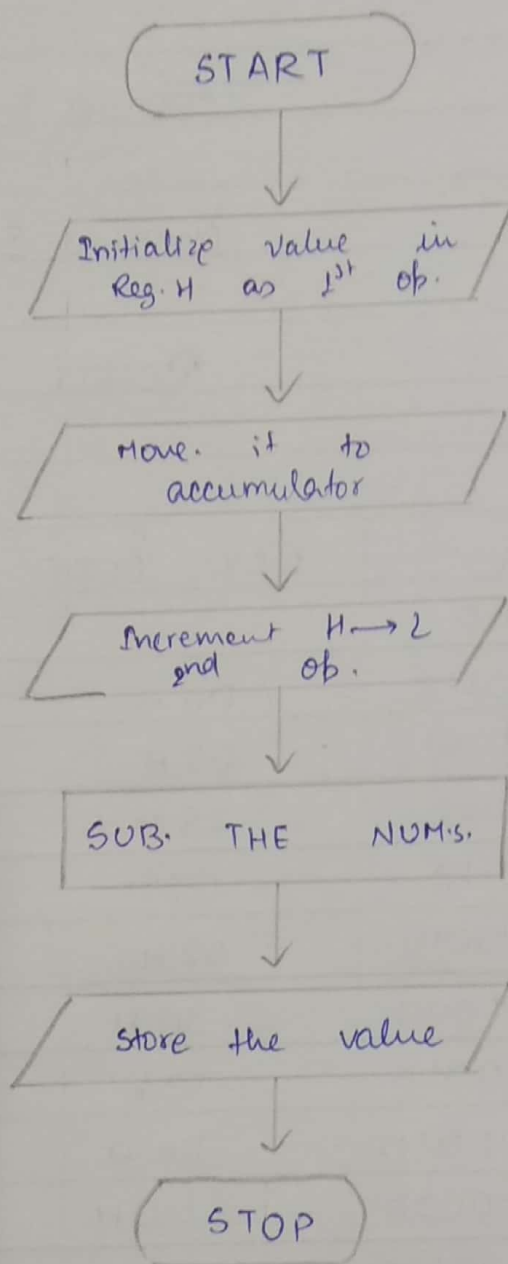 START
Initialize value in
Reg. H as 1st op.
Move. it to
accumulator
Increment H→L
2nd op.
SUB. THE NUM.s.
Store the value
STOP